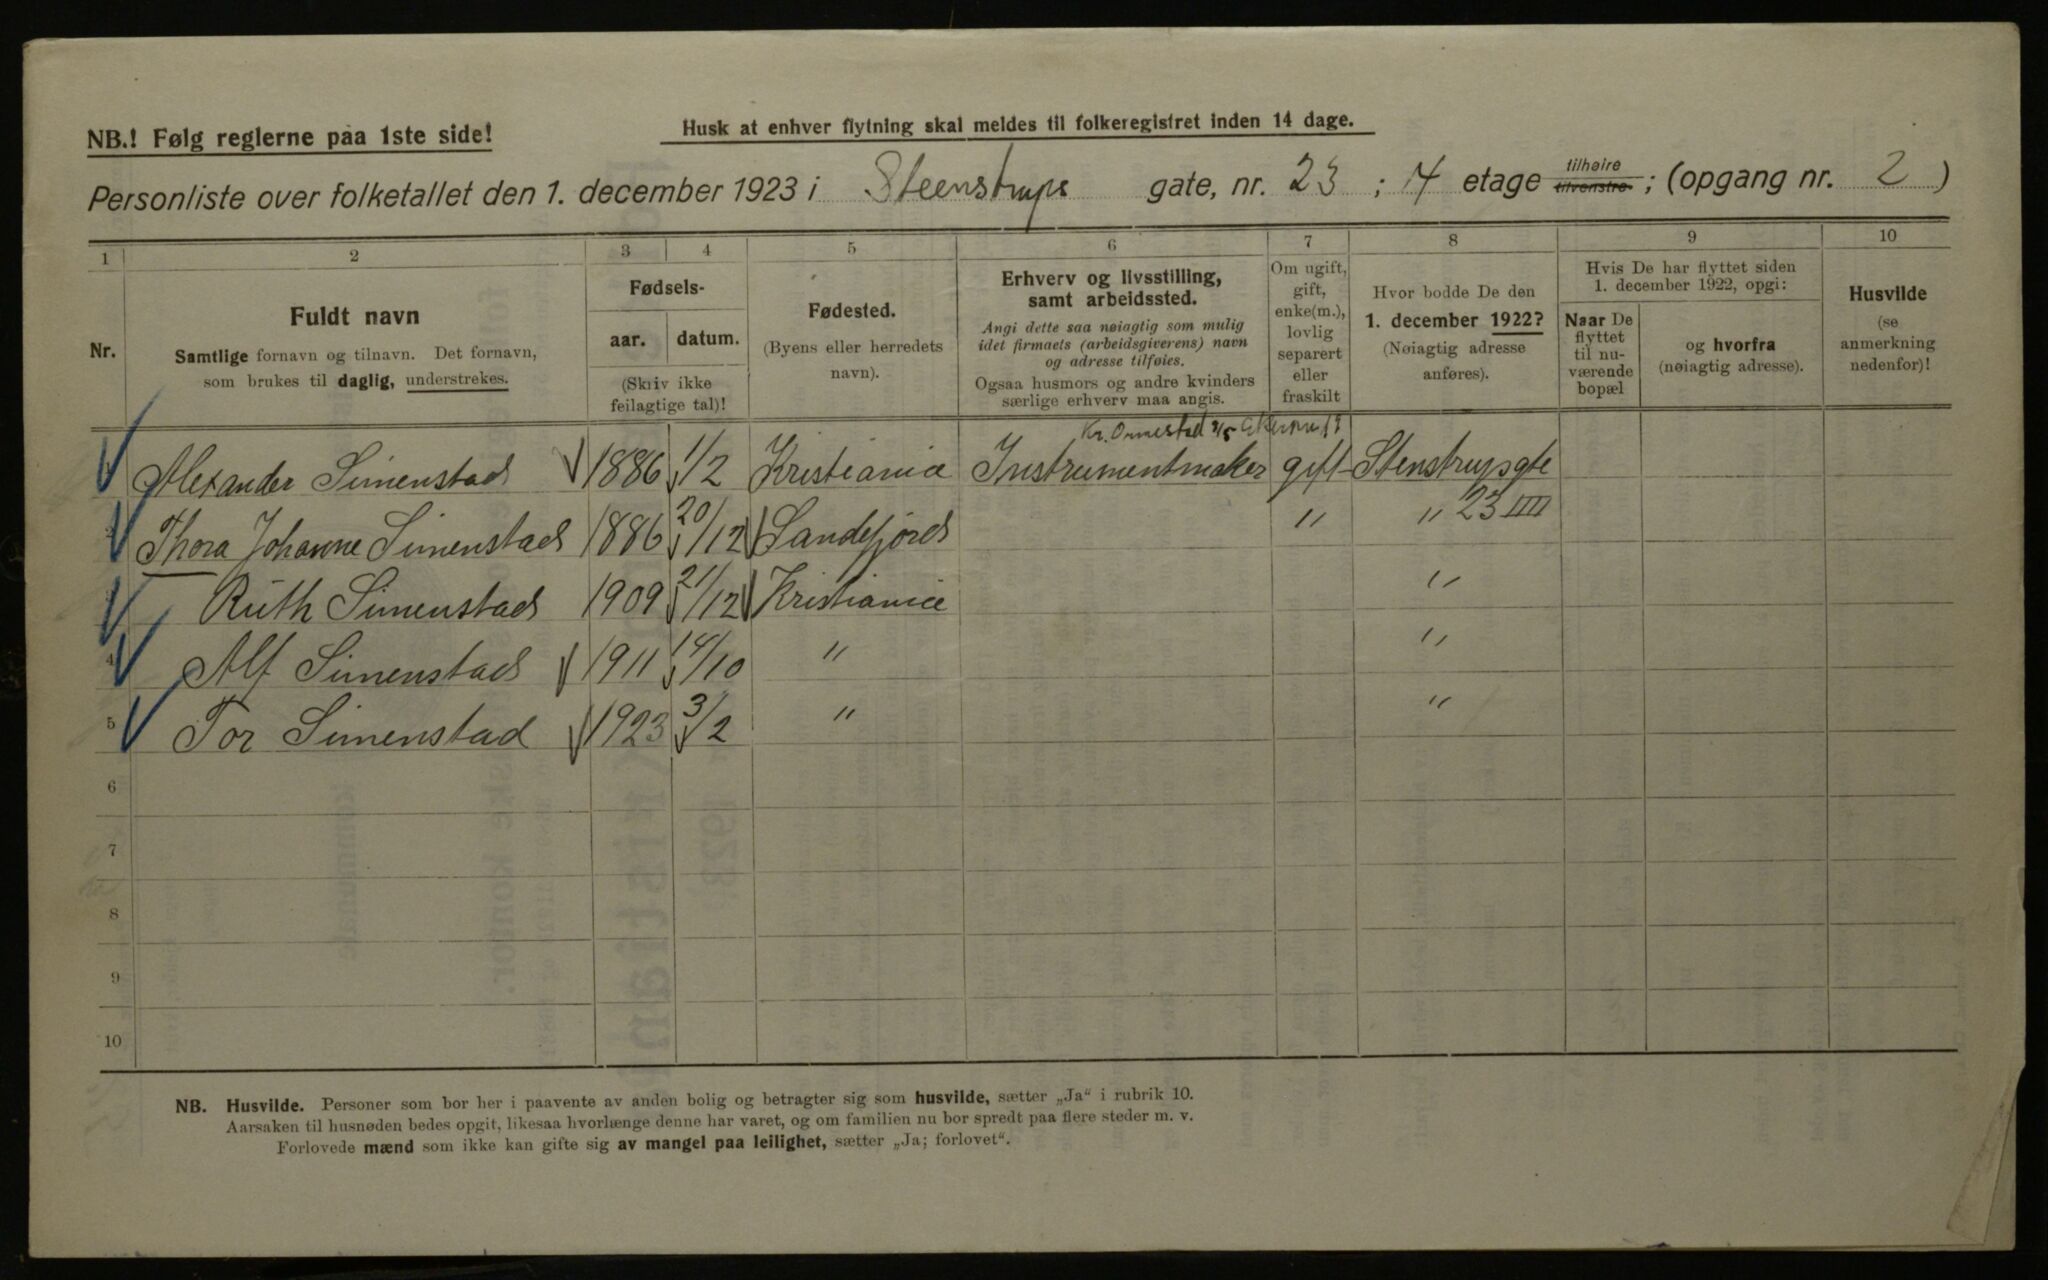 NB.! Følg reglerne paa 1ste side!
Husk at enhver flytning skal meldes til folkeregistret inden 14 dage.
Personliste over folketallet den 1. december 1923 i Steenstrups gate, nr. 23 ; 4 etage tilhøire tilvenstre ; (opgang nr. 2 )
1 2 3 4 5 6 7 8 9 10
Nr.
Fuldt navn
Samtlige fornavn og tilnavn. Det fornavn,
som brukes til daglig, understrekes.
Fødsels-
aar. datum.
(Skriv ikke
feilagtige tal)!
Fødested.
(Byens eller herredets
navn).
Erhverv og livsstilling,
samt arbeidssted.
Angi dette saa nøiagtig som mulig
idet firmaets (arbeidsgiverens) navn
og adresse tilføies.
Ogsaa husmors og andre kvinders
særlige erhverv maa angis.
Om ugift,
gift,
enke(m.),
lovlig
separert
eller
fraskilt
Hvor bodde De den
1. december 1922?
(Nøiagtig adresse
anføres).
Hvis De har flyttet siden
1. december 1922, opgi:
Naar De
flyttet
til nu-
værende
bopæl
og hvorfra
(nøiagtig adresse).
Husvilde
(se
anmerkning
nedenfor)!
Kr. Ormestad
Alexander Simenstad 1886 1/2 Kristiania Instrumentmaker gift Stenstrupsgte
2 Thora Johanne Simenstad 1886 20/12 Sandefjord " " 23 IIII
3 Ruth Simenstad 1909 21/12 Kristiania "
4 Alf Simenstad 1911 14/10 " "
5 Tor Simenstad 1923 3/2 " "
6
7
8
9
10
NB. Husvilde. Personer som bor her i paavente av anden bolig og betragter sig som husvilde, sætter „Ja“ i rubrik 10.
Aarsaken til husnøden bedes opgit, likesaa hvorlænge denne har varet, og om familien nu bor spredt paa flere steder m. v.
Forlovede mænd som ikke kan gifte sig av mangel paa leilighet, sætter „Ja; forlovet“.